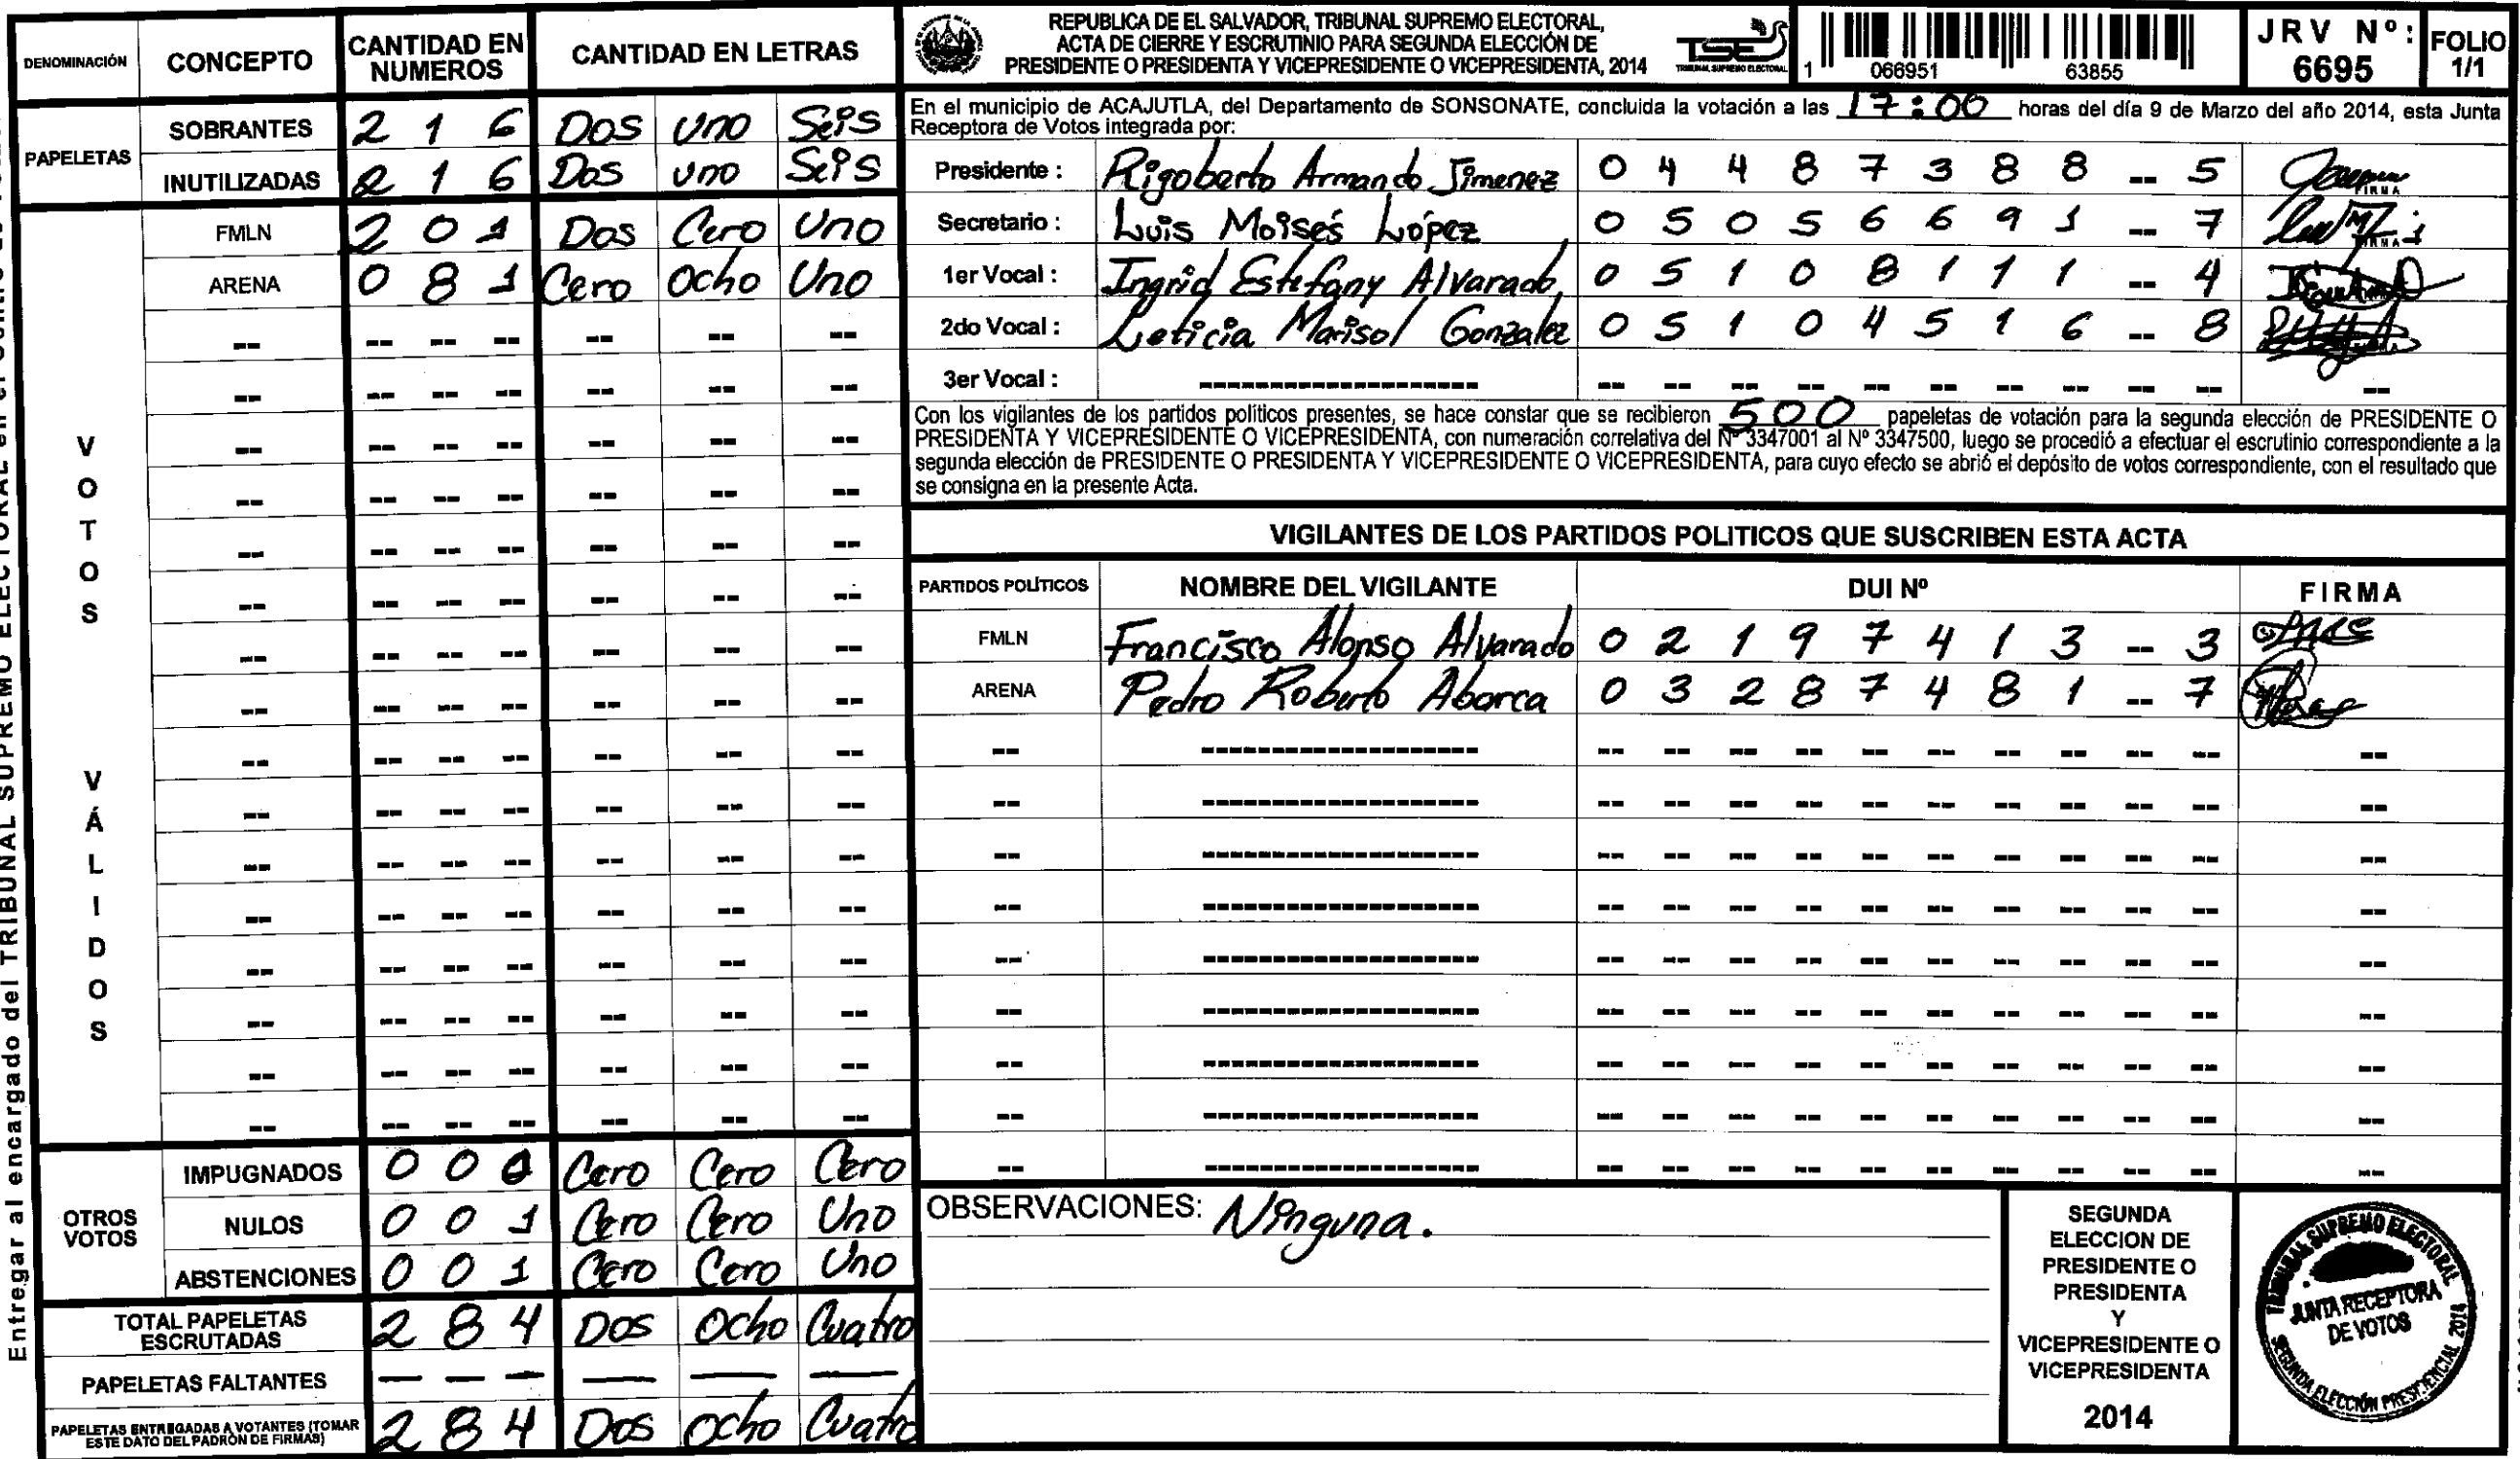 DENOMINACIÓN CONCEPTO CANTIDAD EN NUMEROS CANTIDAD EN LETRAS
PAPELETAS
SOBRANTES 2 1 6 Dos uno Seis
INUTILIZADAS 2 1 6 Dos uno Seis
VOTOS VÁLIDOS
FMLN 2 0 1 Dos Cero Uno
ARENA 0 8 1 Cero Ocho Uno
OTROS VOTOS
IMPUGNADOS 0 0 0 Cero Cero Cero
NULOS 0 0 1 Cero Cero Uno
ABSTENCIONES 0 0 1 Cero Cero Uno
TOTAL PAPELETAS ESCRUTADAS 2 8 4 Dos Ocho Cuatro
PAPELETAS FALTANTES — — — — — —
PAPELETAS ENTREGADAS A VOTANTES (TOMAR ESTE DATO DEL PADRÓN DE FIRMAS) 2 8 4 Dos Ocho Cuatro
REPUBLICA DE EL SALVADOR, TRIBUNAL SUPREMO ELECTORAL,
ACTA DE CIERRE Y ESCRUTINIO PARA SEGUNDA ELECCIÓN DE
PRESIDENTE O PRESIDENTA Y VICEPRESIDENTE O VICEPRESIDENTA, 2014
TSE
TRIBUNAL SUPREMO ELECTORAL
1 066951 63855
JRV Nº: 6695
FOLIO 1/1
En el municipio de ACAJUTLA, del Departamento de SONSONATE, concluida la votación a las 17:00 horas del día 9 de Marzo del año 2014, esta Junta
Receptora de Votos integrada por:
Presidente : Rigoberto Armando Jimenez 0 4 4 8 7 3 8 8 -- 5
FIRMA
Secretario : Luis Moisés López 0 5 0 5 6 6 9 1 -- 7
FIRMA
1er Vocal : Ingrid Estefany Alvarado 0 5 1 0 8 1 1 1 -- 4
2do Vocal : Leticia Marisol Gonzalez 0 5 1 0 4 5 1 6 -- 8
3er Vocal :
Con los vigilantes de los partidos políticos presentes, se hace constar que se recibieron 500 papeletas de votación para la segunda elección de PRESIDENTE O
PRESIDENTA Y VICEPRESIDENTE O VICEPRESIDENTA, con numeración correlativa del Nº 3347001 al Nº 3347500, luego se procedió a efectuar el escrutinio correspondiente a la
segunda elección de PRESIDENTE O PRESIDENTA Y VICEPRESIDENTE O VICEPRESIDENTA, para cuyo efecto se abrió el depósito de votos correspondiente, con el resultado que
se consigna en la presente Acta.
VIGILANTES DE LOS PARTIDOS POLITICOS QUE SUSCRIBEN ESTA ACTA
PARTIDOS POLÍTICOS NOMBRE DEL VIGILANTE DUI Nº FIRMA
FMLN Francisco Alonso Alvarado 0 2 1 9 7 4 1 3 -- 3
ARENA Pedro Roberto Abarca 0 3 2 8 7 4 8 1 -- 7
OBSERVACIONES: Ninguna.
SEGUNDA
ELECCION DE
PRESIDENTE O
PRESIDENTA
Y
VICEPRESIDENTE O
VICEPRESIDENTA
2014
TRIBUNAL SUPREMO ELECTORAL
JUNTA RECEPTORA
DE VOTOS
SEGUNDA ELECCIÓN PRESIDENCIAL 2014
Entregar al encargado del TRIBUNAL SUPREMO ELECTORAL en el